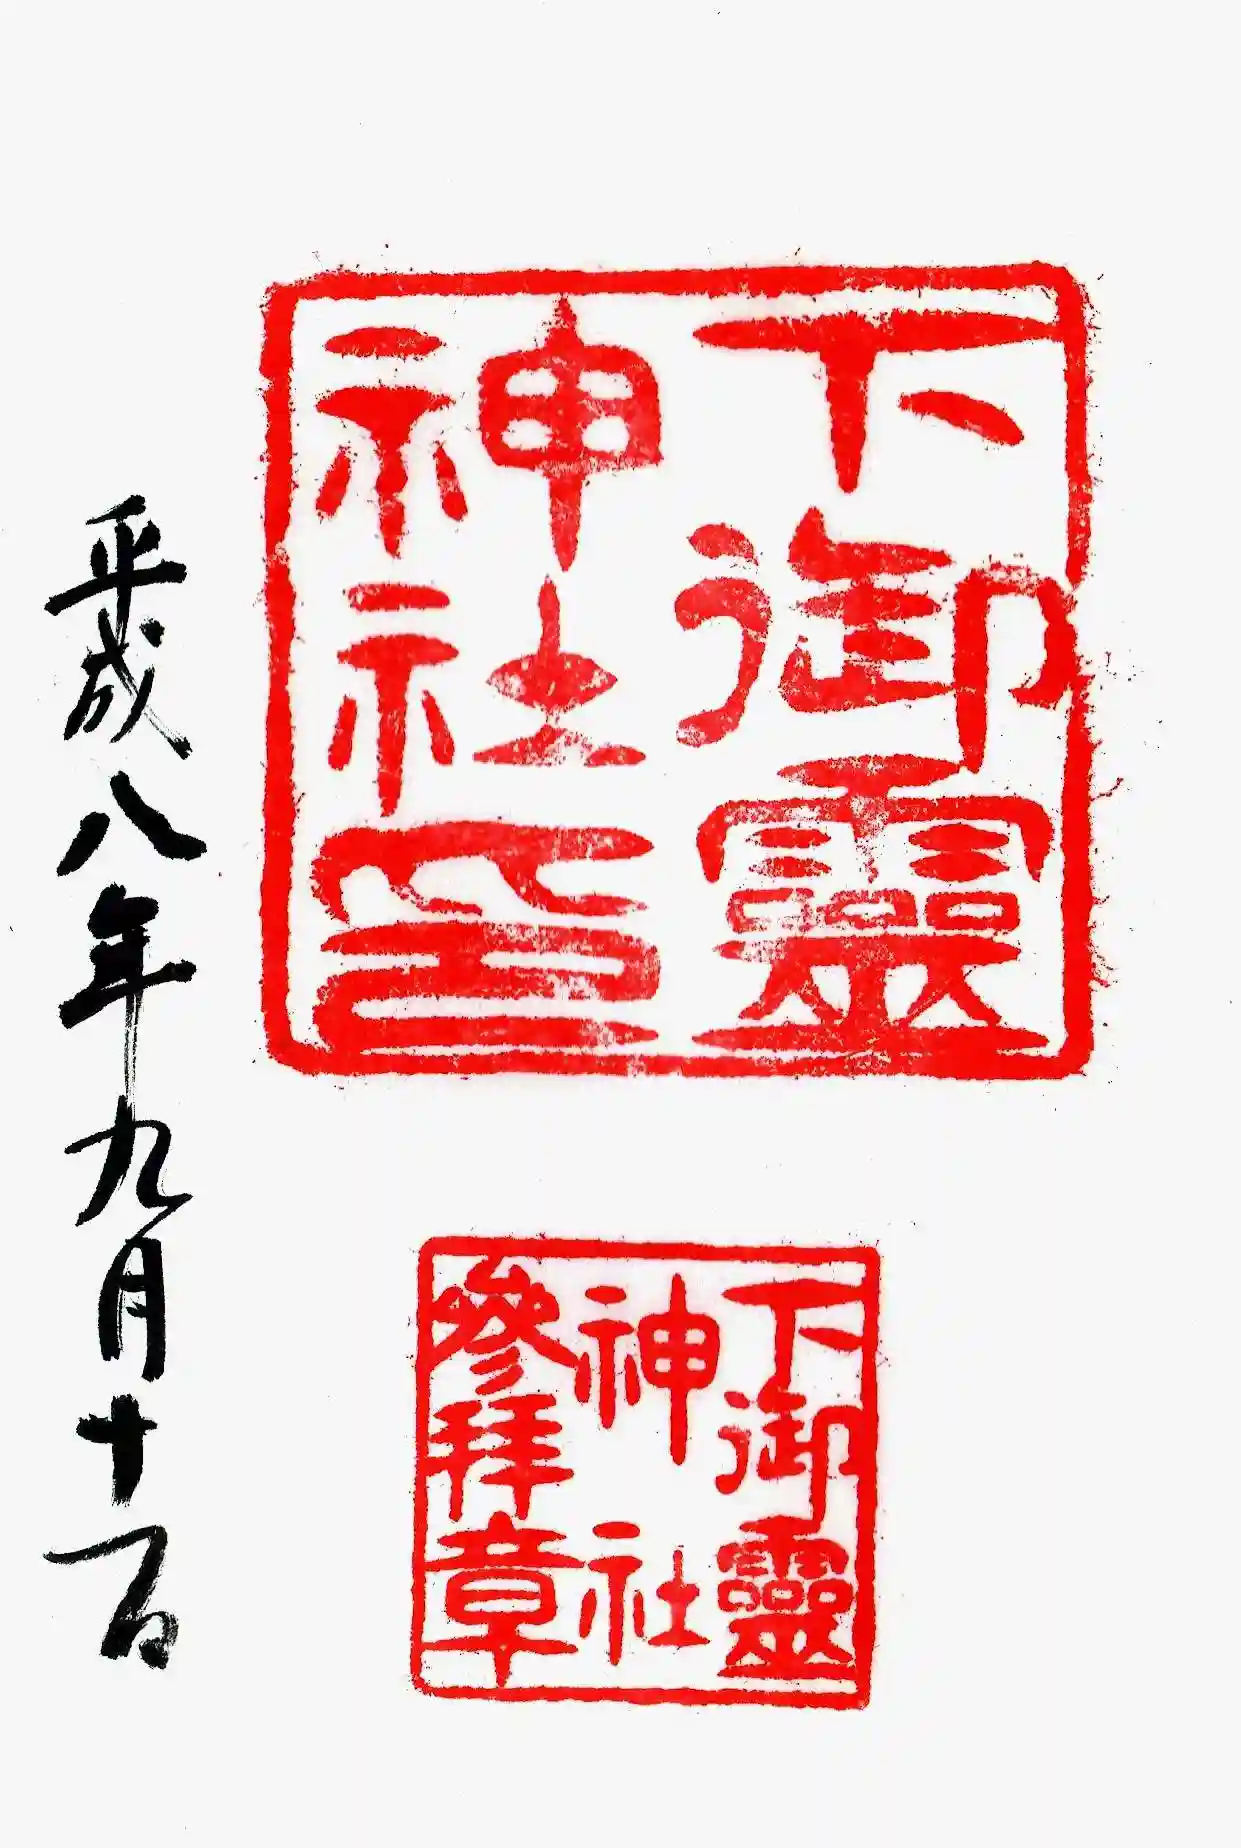 下御靈
神社印
下御靈
神社
參拜章
平成八年九月十一日